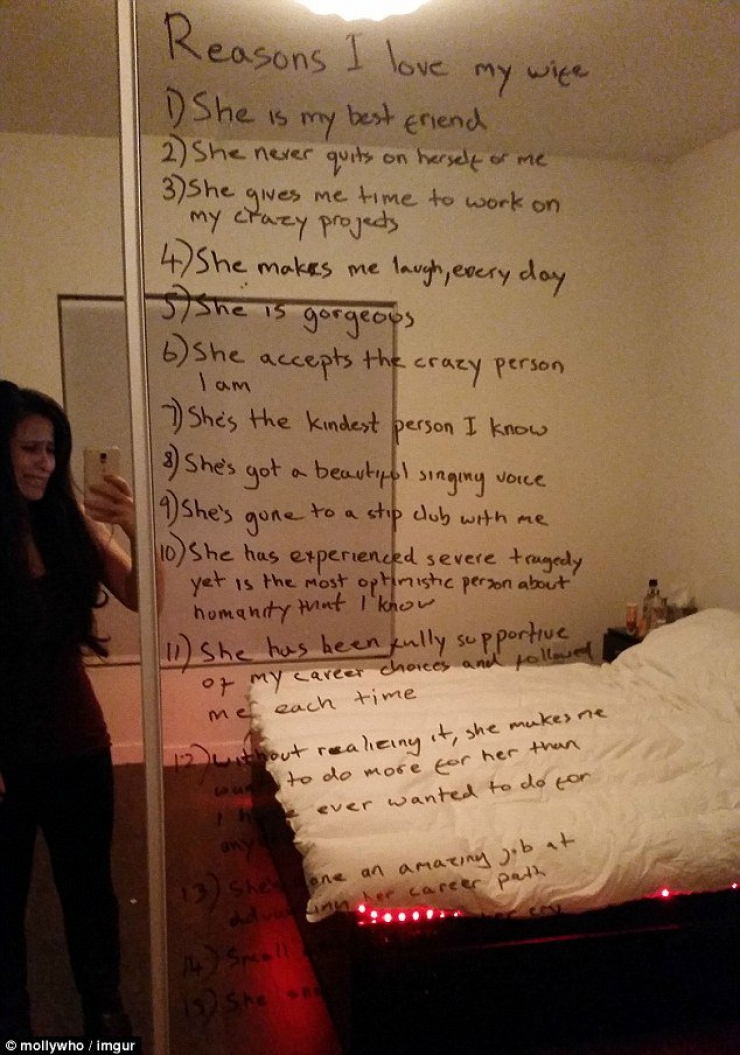 Reasons I love my wife
1) She is my best friend
2) She never quits on herself or me
3) She gives me time to work on
my crazy projects
4) She makes me laugh, every day
5) She is gorgeous
6) She accepts the crazy person
I am
7) She's the kindest person I know
8) She's got a beautiful singing voice
9) She's gone to a strip club with me
10) She has experienced severe tragedy
yet is the most optimistic person about
humanity that I know
11) She has been fully supportive
of my career choices and followed
me each time
12) without realizing it, she makes me
want to do more for her than
I have ever wanted to do for
any
13) She's done an amazing job at
advancing her career path
14) Small
her cry
15) She
© mollywho / imgur